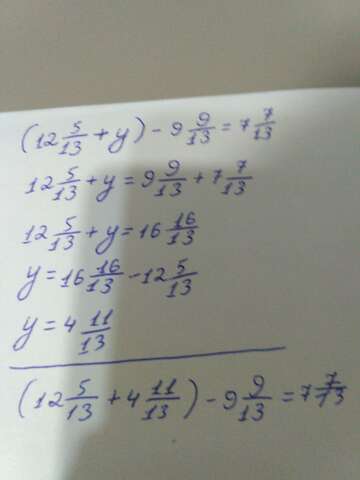 (12 5/13 + y) - 9 9/13 = 7 7/13
12 5/13 + y = 9 9/13 + 7 7/13
12 5/13 + y = 16 16/13
y = 16 16/13 - 12 5/13
y = 4 11/13
(12 5/13 + 4 11/13) - 9 9/13 = 7 7/13